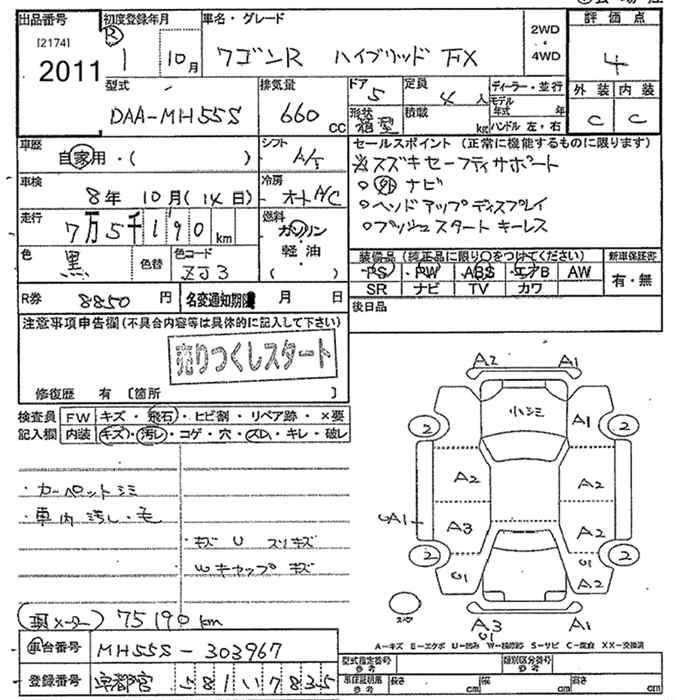 出品番号 初度登録年月 車名・グレード 評価点
[2174] 2011
R 1 10月 ワゴンR ハイブリッド FX 2WD・4WD 4
型式 排気量 ドア 定員 ディーラー・並行 外装 内装
DAA-MH55S 660 CC 5 4人 モデル年式 年 C C
形状 箱型 積載 kg ハンドル 左・右
車歴 シフト セールスポイント(正常に機能するものに限ります)
自家用・( ) A/T ※スズキセーフティサポート
車検 冷房 ○外ナビ
8年 10月(14日) オートA/C ○ヘッドアップディスプレイ
走行 燃料 ○プッシュスタート キーレス
7万5千190km ガソリン
軽油
( )
色 色替 色コード 装備品(純正品に限り○をつけてください) 新車保証書
黒 ZJ3 PS PW ABS エアB AW 有・無
SR ナビ TV カワ
R券 8850円 名変通知期限 月 日 後日品
注意事項申告欄(不具合内容等は具体的に記入して下さい)
売りつくしスタート
修復歴 有 〔箇所 〕
検査員 FW キズ・飛石・ヒビ割・リペア跡・×要
記入欄 内装 キズ・汚レ・コゲ・穴・スレ・キレ・破レ
・カーペットシミ
・車内汚レ・毛
・キズ U スリキズ
Wキャップ キズ
75190km
車台番号 MH55S-303967
登録番号 宇都宮 581 い 7835
A2 A1
小シミ A1
2 2
A2 A2
A1 A3 A2
2 2
U1 U1 A2
スペア
A3 A1
U1
A-キズ E-エクボ U-凹み W-補修跡 S-サビ C-腐食 XX-交換済
型式指定番号 参考 類別区分番号 参考
車庫証明用 参考 長さ cm 幅 cm 高さ cm